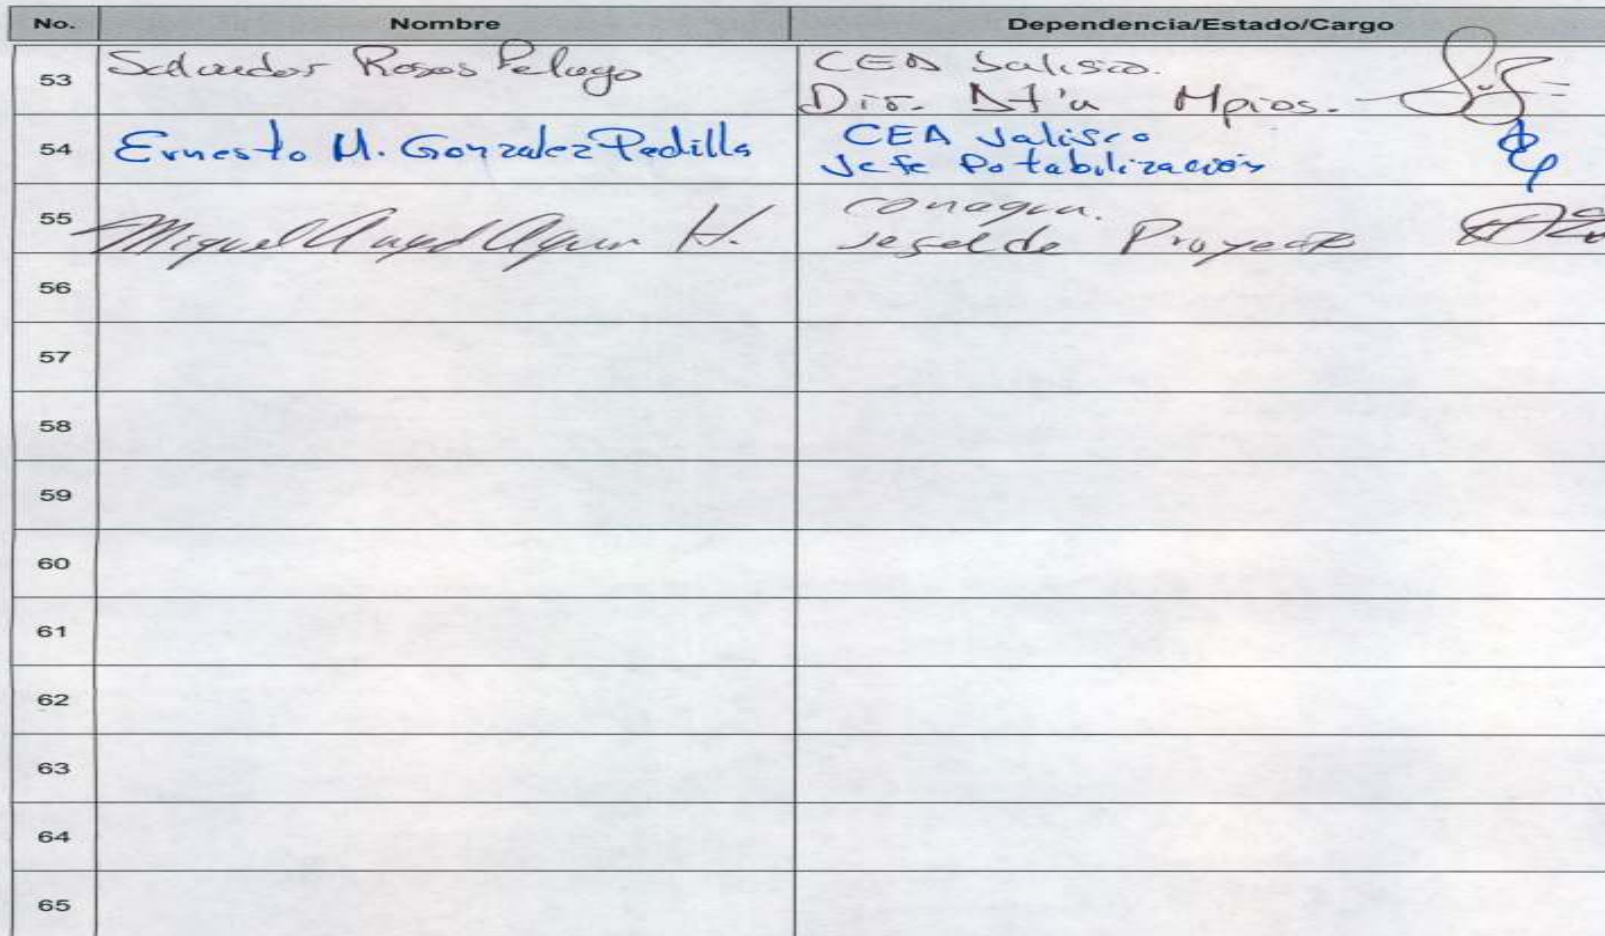 No. Nombre Dependencia/Estado/Cargo
53 Salvador Rosas Pelayo CEA Jalisco.
Dir. At'n Mpios.
54 Ernesto M. Gonzalez Padilla CEA Jalisco
Jefe Potabilización
55 Miguel Angel H. conagua.
Jefe de Proyecto
56
57
58
59
60
61
62
63
64
65